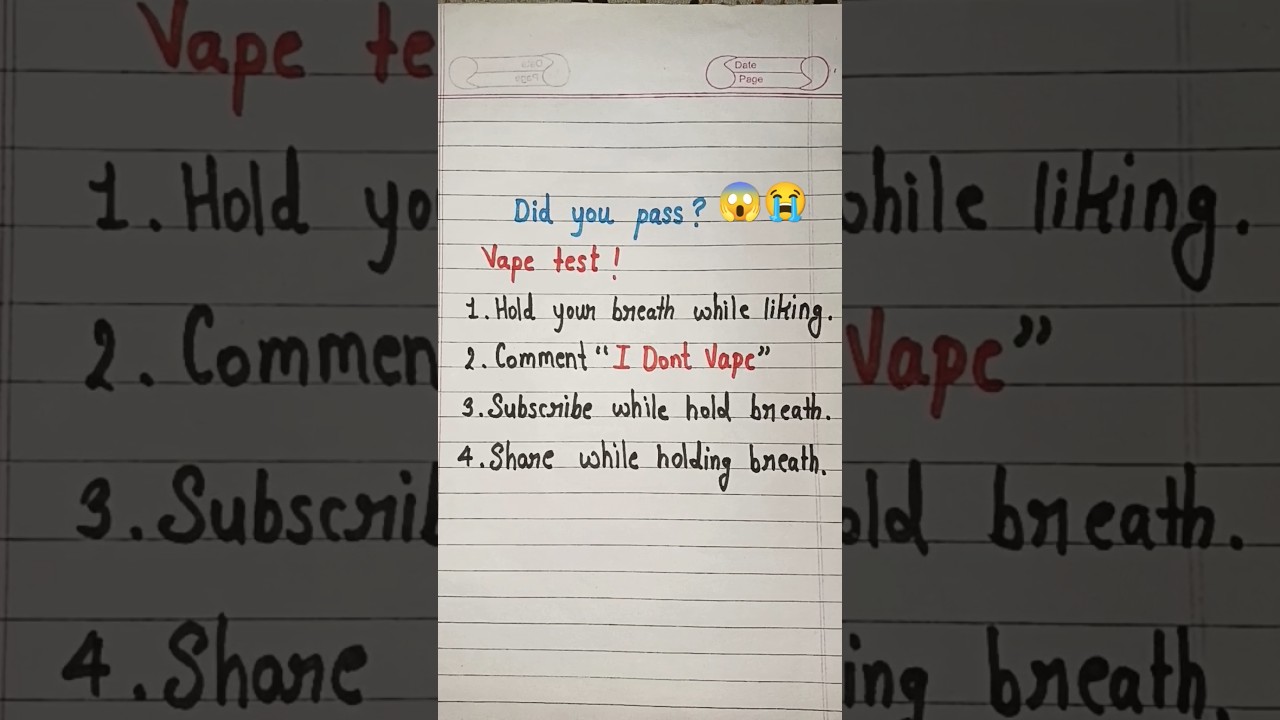 Date
Page
Did you pass? 😱😭
Vape test!
1. Hold your breath while liking.
2. Comment "I Dont Vape"
3. Subscribe while hold breath.
4. Share while holding breath.